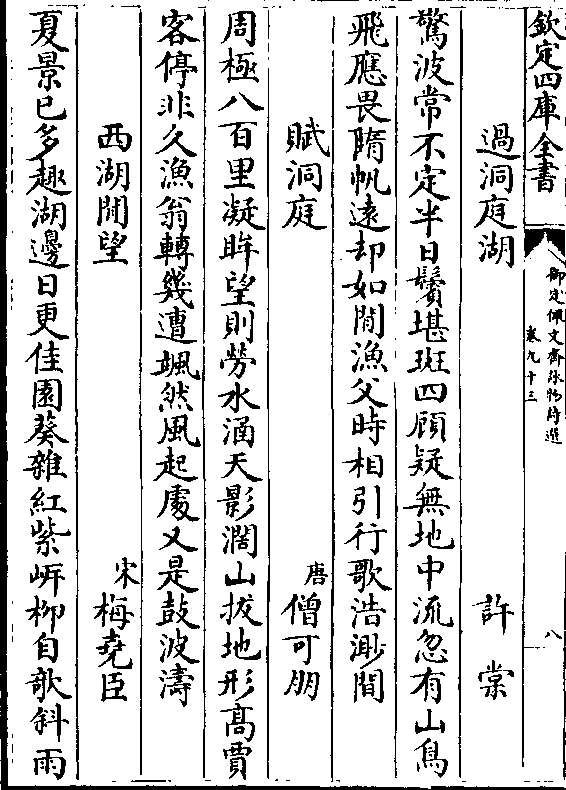 欽定四庫全書
御定佩文齋詠物詩選
卷九十三
八
過洞庭湖 許棠
驚波常不定半日鬢堪斑四顧疑無地中流忽有山鳥
飛應畏墮帆遠却如閒漁父時相引行歌浩渺間
賦洞庭 唐 僧可朋
周極八百里凝眸望則勞水涵天影濶山拔地形髙賈
客停非久漁翁轉幾遭颯然風起處又是鼓波濤
西湖閒望 宋 梅堯臣
夏景已多趣湖邊日更佳園葵雜紅紫岍柳自欹斜雨